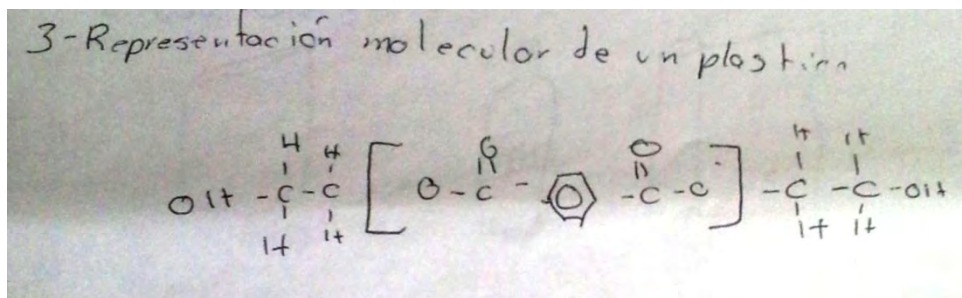 3-Representación molecular de un plastico
H H O O H H
OH -C-C [ O-C- -C-O ] -C -C-OH
H H H H